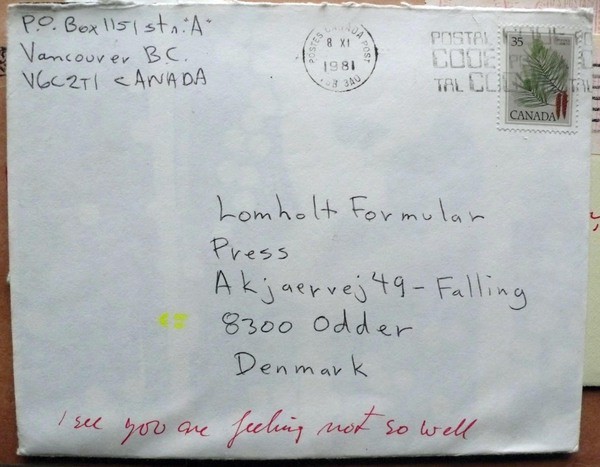 P.O. Box 1151 stn. "A"
Vancouver B.C.
V6C2T1 CANADA
POSTES CANADA POST
8 XI
1981
V6B 3A0
POSTAL CODE
CODE
TAL CODE
35
CANADA
Lomholt Formular
Press
Akjaervej 49 - Falling
8300 Odder
Denmark
I see you are feeling not so well